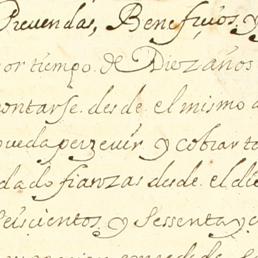 Preuendas, Benefiçios, y
por tiempo de Diez años
contarse desde el mismo
pueda perzeuir y cobrar to
dado fianzas desde el die
Seiscientos y Sessenta y c